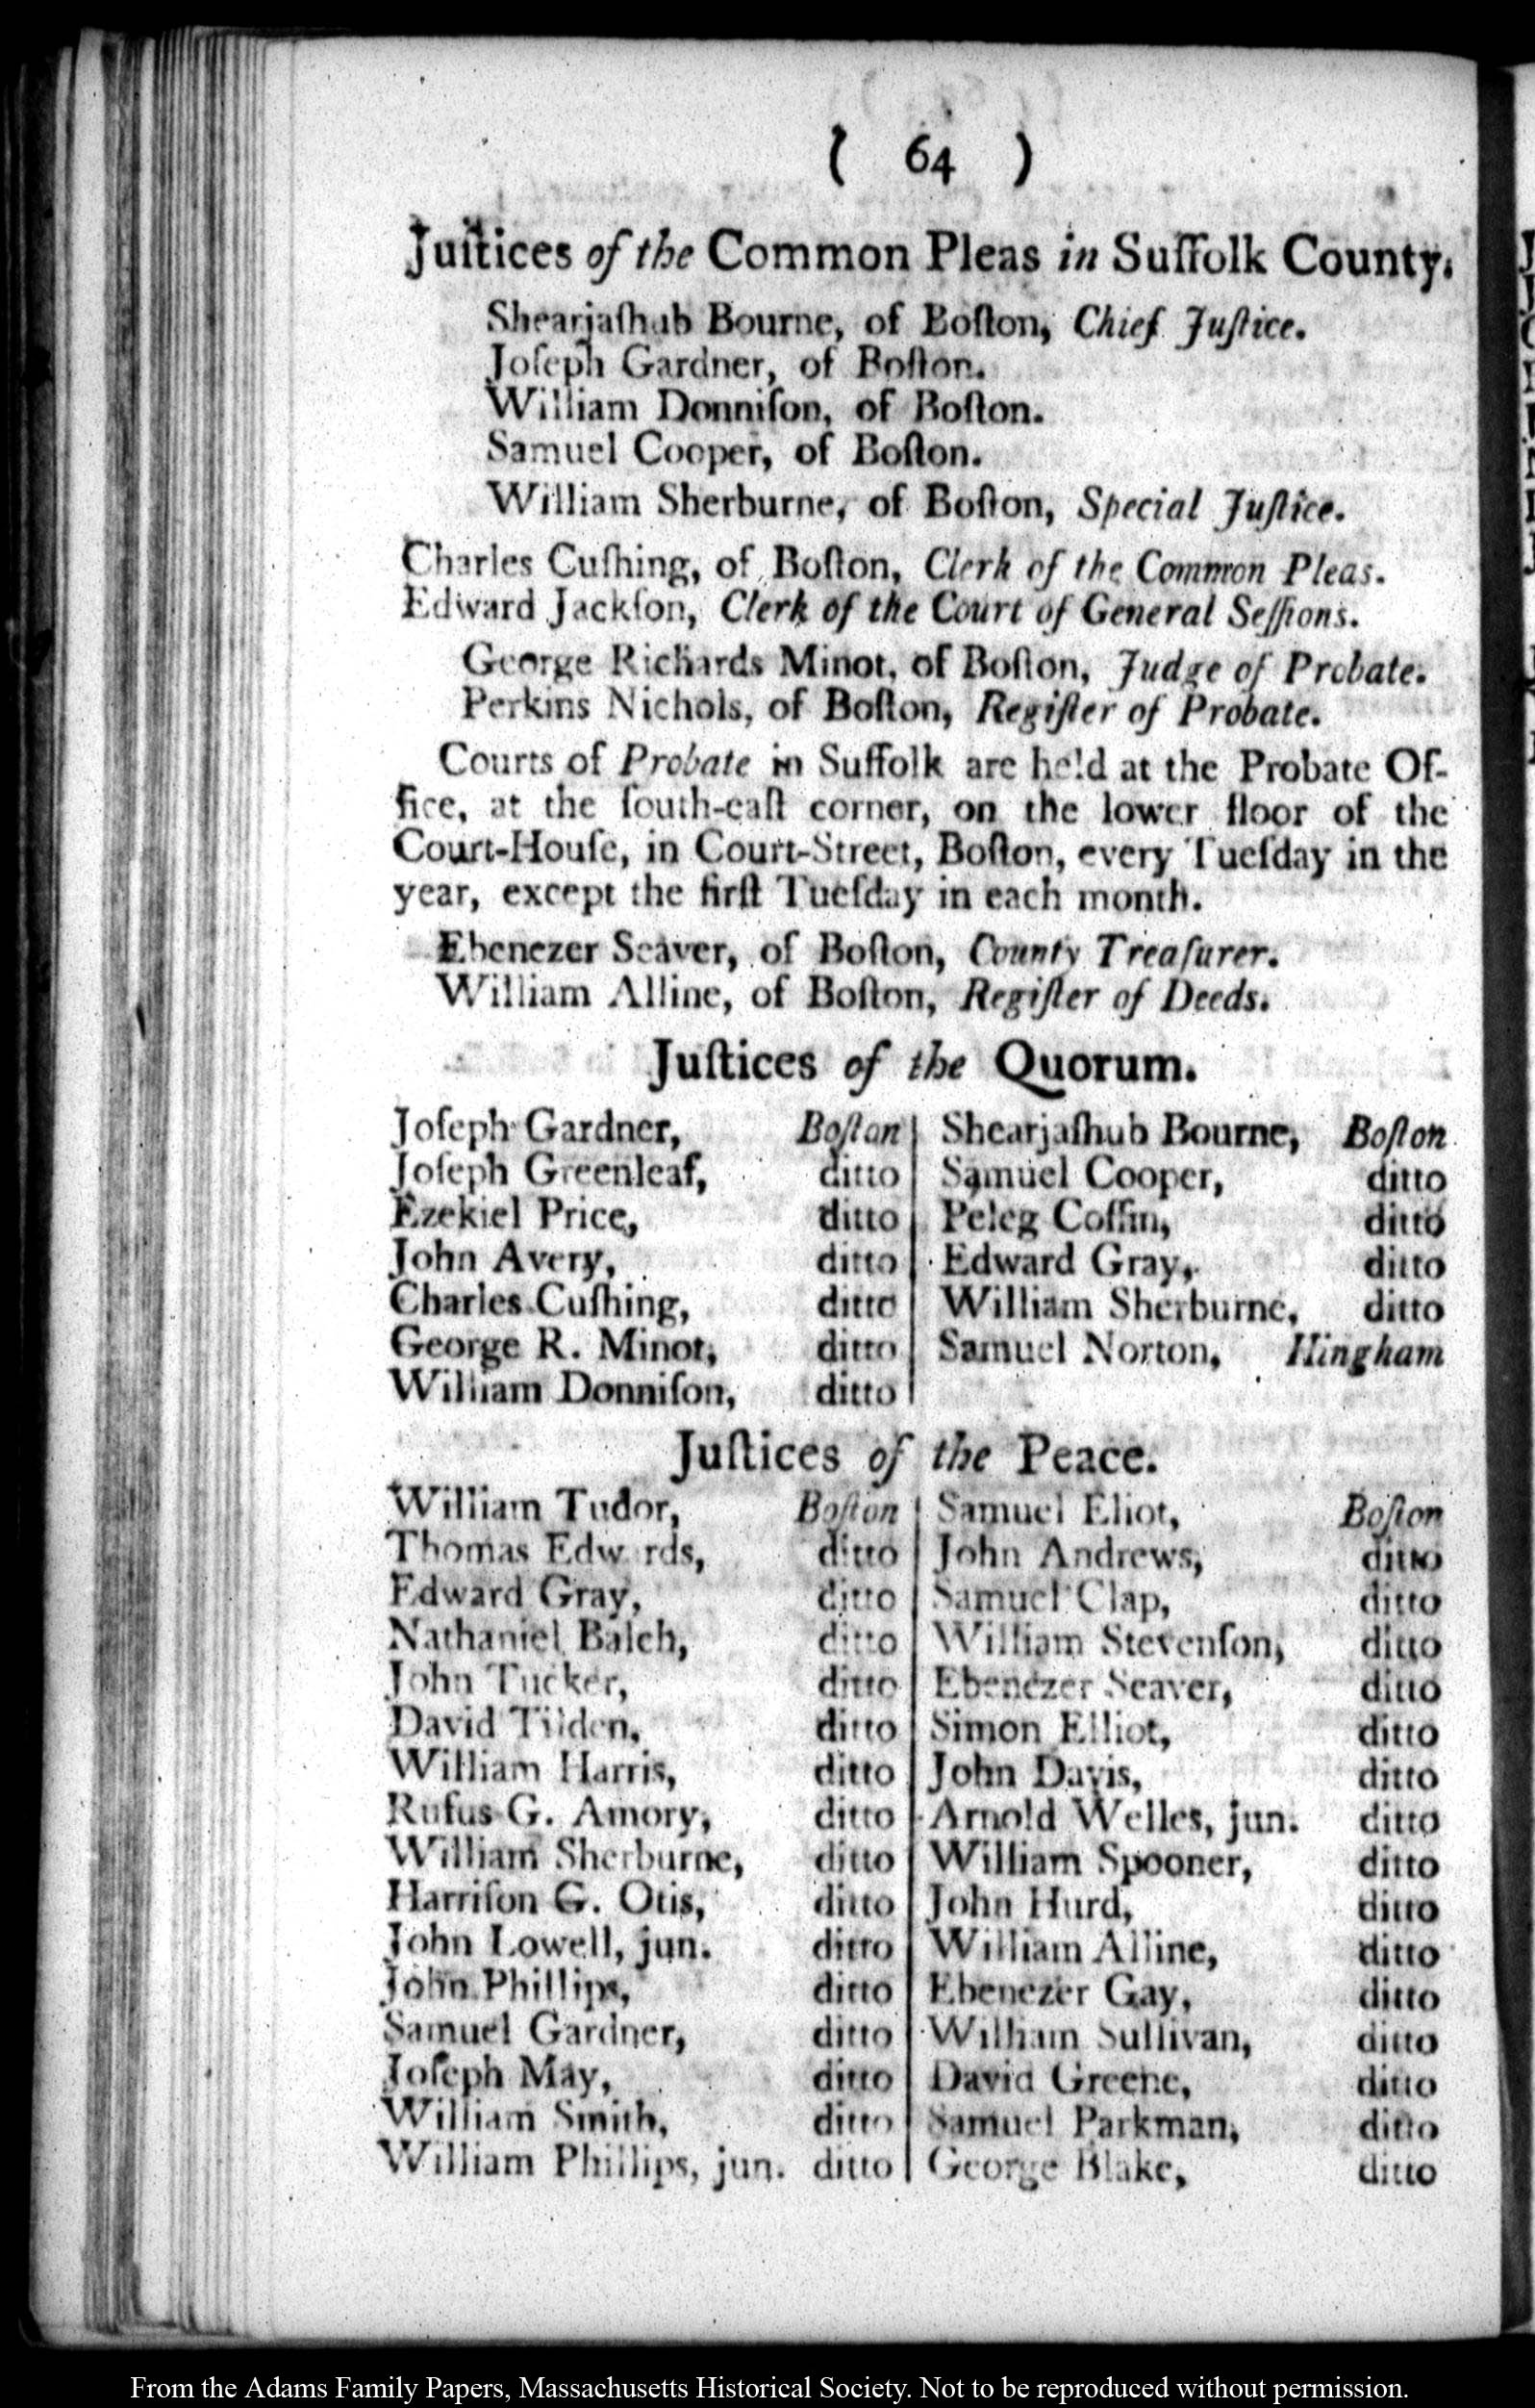 ( 64 )
Juſtices of the Common Pleas in Suffolk County.
Shearjaſhub Bourne, of Boſton, Chief Juſtice.
Joſeph Gardner, of Boſton.
William Donniſon, of Boſton.
Samuel Cooper, of Boſton.
William Sherburne, of Boſton, Special Juſtice.
Charles Cuſhing, of Boſton, Clerk of the Common Pleas.
Edward Jackſon, Clerk of the Court of General Seſſions.
George Richards Minot, of Boſton, Judge of Probate.
Perkins Nichols, of Boſton, Regiſter of Probate.
Courts of Probate in Suffolk are held at the Probate Of-
fice, at the ſouth-eaſt corner, on the lower floor of the
Court-Houſe, in Court-Street, Boſton, every Tueſday in the
year, except the firſt Tueſday in each month.
Ebenezer Seaver, of Boſton, County Treaſurer.
William Alline, of Boſton, Regiſter of Deeds.
Juſtices of the Quorum.
Joſeph Gardner, Boſton
Joſeph Greenleaf, ditto
Ezekiel Price, ditto
John Avery, ditto
Charles Cuſhing, ditto
George R. Minot, ditto
William Donniſon, ditto
Shearjaſhub Bourne, Boſton
Samuel Cooper, ditto
Peleg Coffin, ditto
Edward Gray, ditto
William Sherburne, ditto
Samuel Norton, Hingham
Juſtices of the Peace.
William Tudor, Boſton
Thomas Edw rds, ditto
Edward Gray, ditto
Nathaniel Balch, ditto
John Tucker, ditto
David Tilden, ditto
William Harris, ditto
Rufus G. Amory, ditto
William Sherburne, ditto
Harriſon G. Otis, ditto
John Lowell, jun. ditto
John Phillips, ditto
Samuel Gardner, ditto
Joſeph May, ditto
William Smith, ditto
William Phillips, jun. ditto
Samuel Eliot, Boſton
John Andrews, ditto
Samuel Clap, ditto
William Stevenſon, ditto
Ebenezer Seaver, ditto
Simon Elliot, ditto
John Davis, ditto
Arnold Welles, jun. ditto
William Spooner, ditto
John Hurd, ditto
William Alline, ditto
Ebenezer Gay, ditto
William Sullivan, ditto
David Greene, ditto
Samuel Parkman, ditto
George Blake, ditto
From the Adams Family Papers, Massachusetts Historical Society. Not to be reproduced without permission.